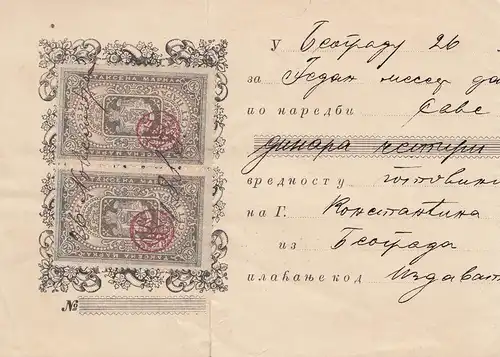 ТАКСЕНА МАРКА
ТАКСЕНА МАРКА
№
У Београду 26
за Један месец да
по наредби Саве
динара четири
вредност у готовини
на Г. Константина
из Београда
плаћање код Издават